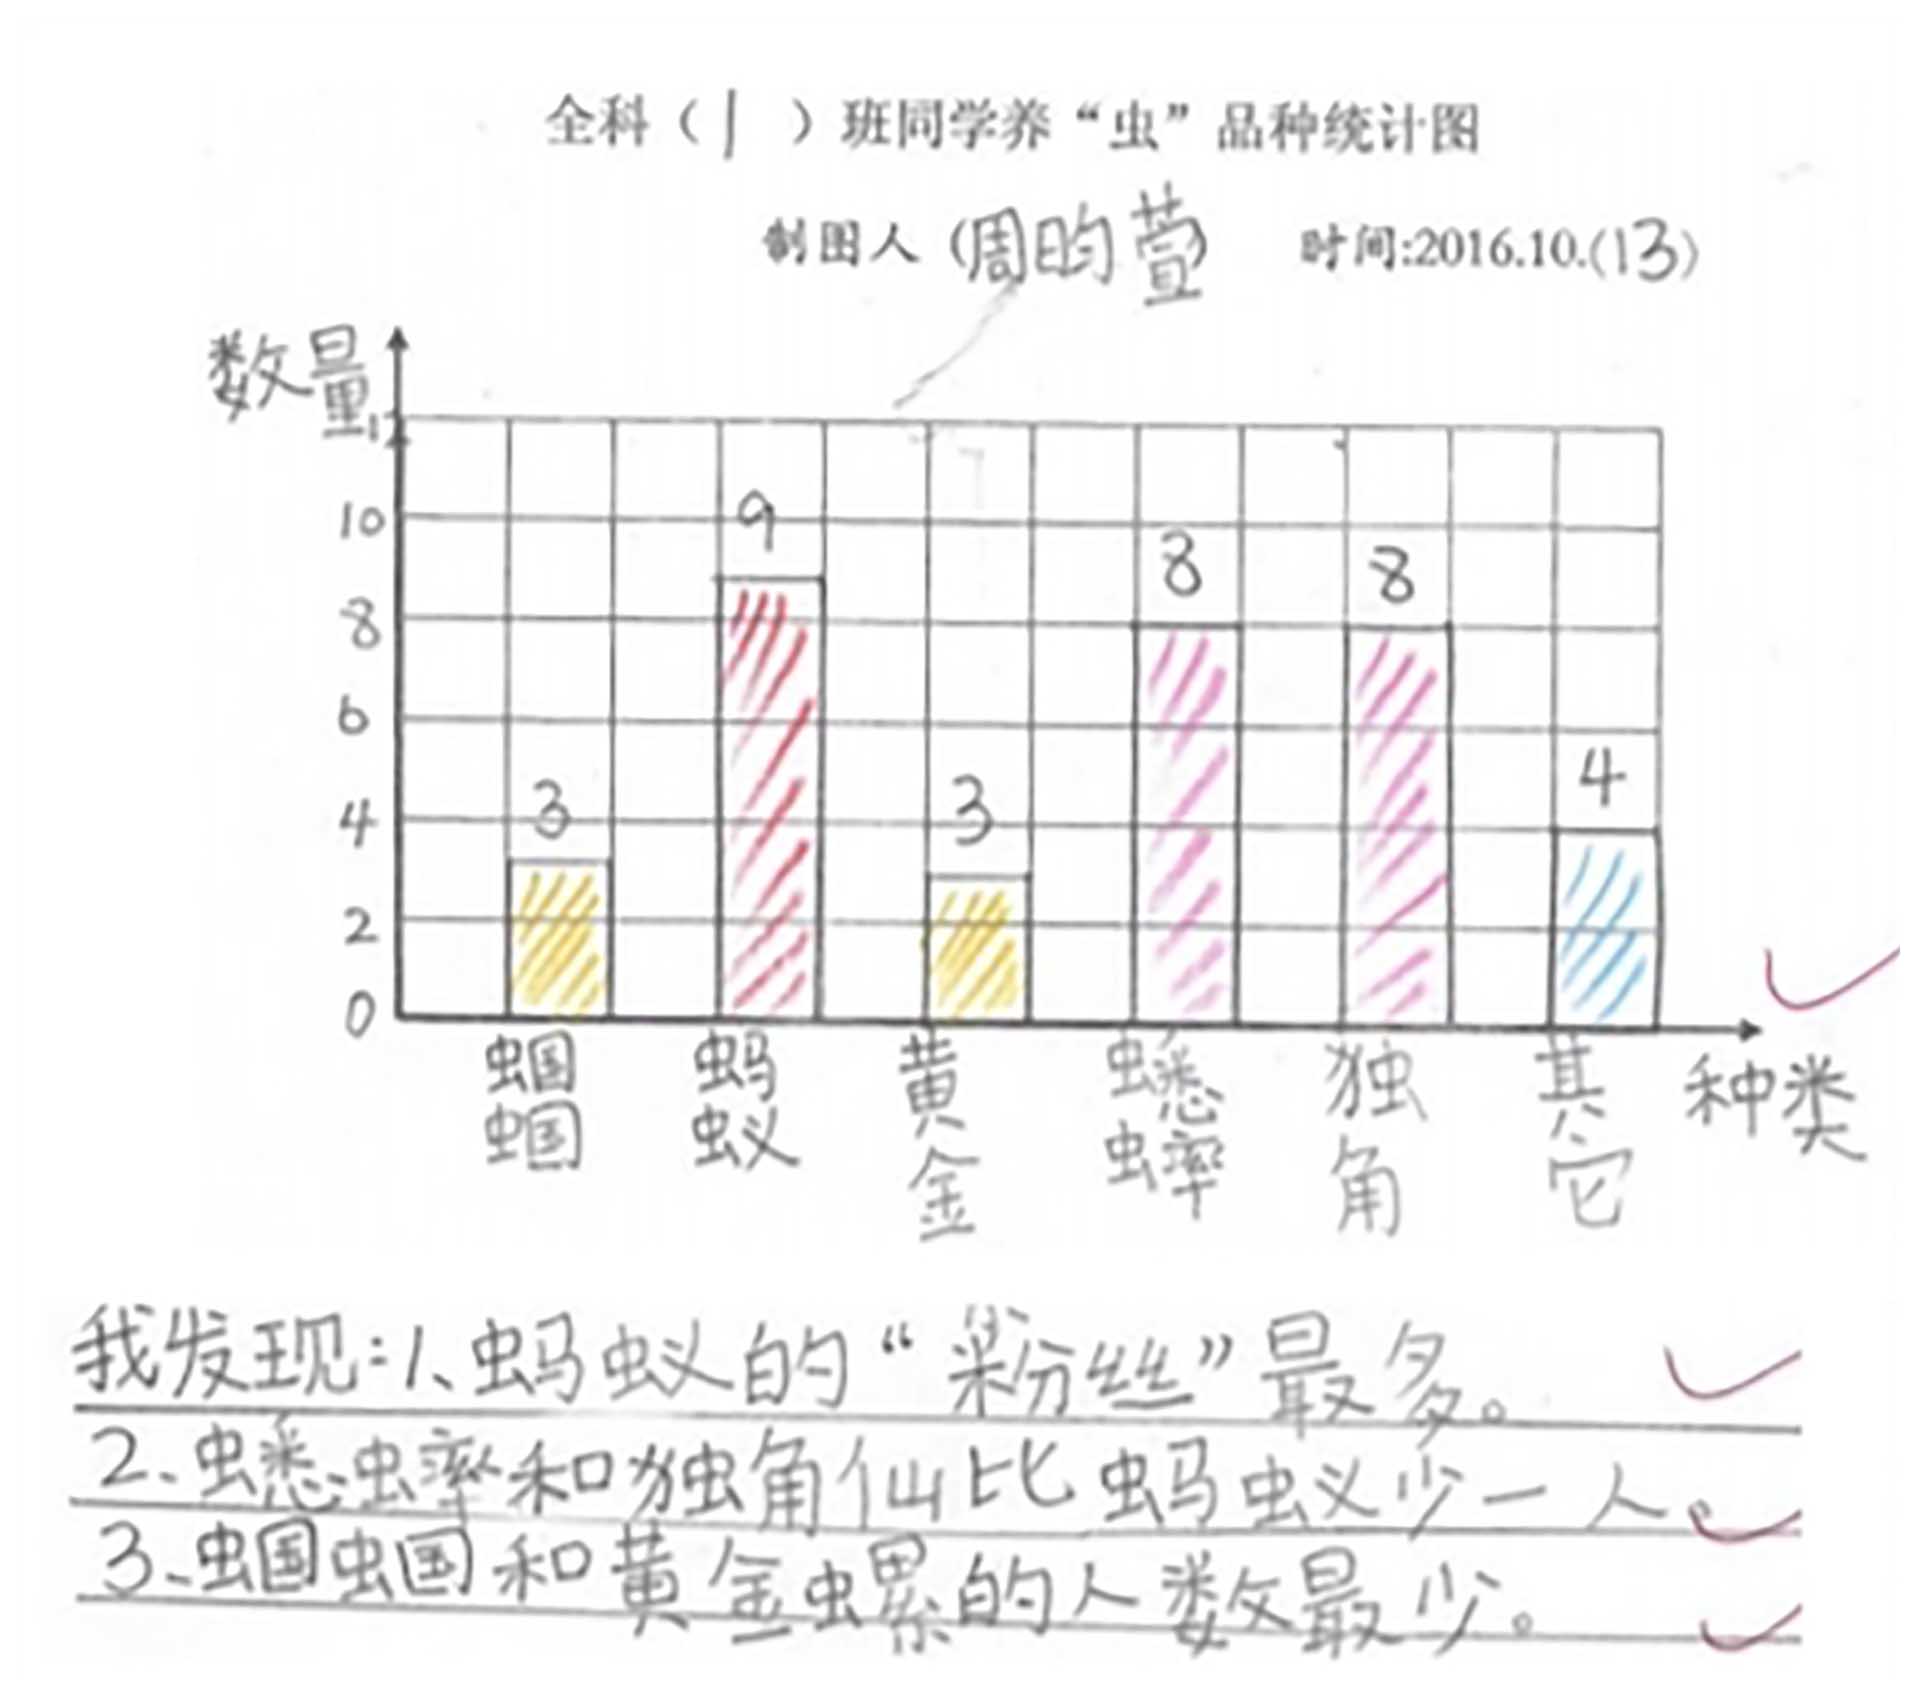 全科（1）班同学养“虫”品种统计图
制图人（周昀萱） 时间:2016.10.(13)
数量
12
10
9
8
8
8
6
4
4
3
3
2
0
蝈蝈 蚂蚁 黄金 蟋蟀 独角 其它 种类
我发现:1、蚂蚁的“粉丝”最多。
2、蟋蟀和独角仙比蚂蚁少一人。
3、蝈蝈和黄金螺的人数最少。